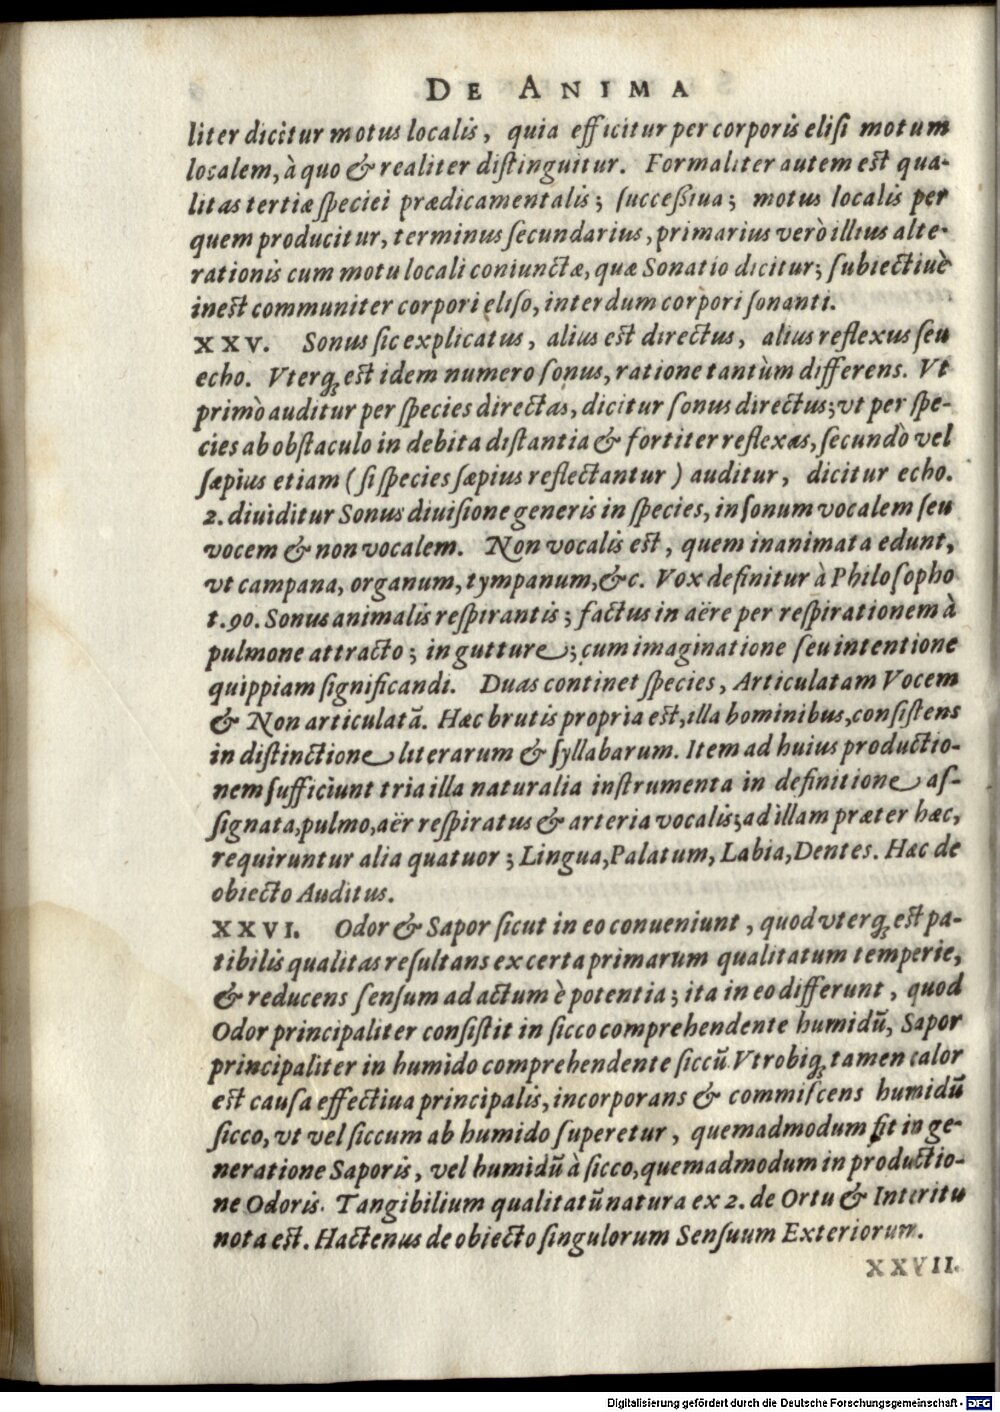 DE ANIMA
liter dicitur motus localis, quia efficitur per corporis elisi motum
localem, à quo & realiter distinguitur. Formaliter autem est qua-
litas tertiæ speciei prædicamentalis; successiua; motus localis per
quem producitur, terminus secundarius, primarius verò illius alte-
rationis cum motu locali coniunctæ, quæ Sonatio dicitur; subiectiuè
inest communiter corpori eliso, interdum corpori sonanti.
XXV. Sonus sic explicatus, alius est directus, alius reflexus seu
echo. Vterq; est idem numero sonus, ratione tantùm differens. Vt
primò auditur per species directas, dicitur sonus directus; vt per spe-
cies ab obstaculo in debita distantia & fortiter reflexas, secundò vel
sæpius etiam (si species sæpius reflectantur) auditur, dicitur echo.
2. diuiditur Sonus diuisione generis in species, in sonum vocalem seu
vocem & non vocalem. Non vocalis est, quem inanimata edunt,
vt campana, organum, tympanum, &c. Vox definitur à Philosopho
t.90. Sonus animalis respirantis; factus in aëre per respirationem à
pulmone attracto; in gutture; cum imaginatione seu intentione
quippiam significandi. Duas continet species, Articulatam Vocem
& Non articulatã. Hæc brutis propria est, illa hominibus, consistens
in distinctione literarum & syllabarum. Item ad huius productio-
nem sufficiunt tria illa naturalia instrumenta in definitione as-
signata, pulmo, aër respiratus & arteria vocalis; ad illam præter hæc,
requiruntur alia quatuor; Lingua, Palatum, Labia, Dentes. Hæc de
obiecto Auditus.
XXVI. Odor & Sapor sicut in eo conueniunt, quod vterq; est pa-
tibilis qualitas resultans ex certa primarum qualitatum temperie,
& reducens sensum ad actum è potentia; ita in eo differunt, quod
Odor principaliter consistit in sicco comprehendente humidũ, Sapor
principaliter in humido comprehendente siccũ. Vtrobiq; tamen calor
est causa effectiua principalis, incorporans & commiscens humidũ
sicco, vt vel siccum ab humido superetur, quemadmodum fit in ge-
neratione Saporis, vel humidũ à sicco, quemadmodum in productio-
ne Odoris. Tangibilium qualitatũ natura ex 2. de Ortu & Interitu
nota est. Hactenus de obiecto singulorum Sensuum Exteriorum.
XXVII.
Digitalisierung gefördert durch die Deutsche Forschungsgemeinschaft - DFG